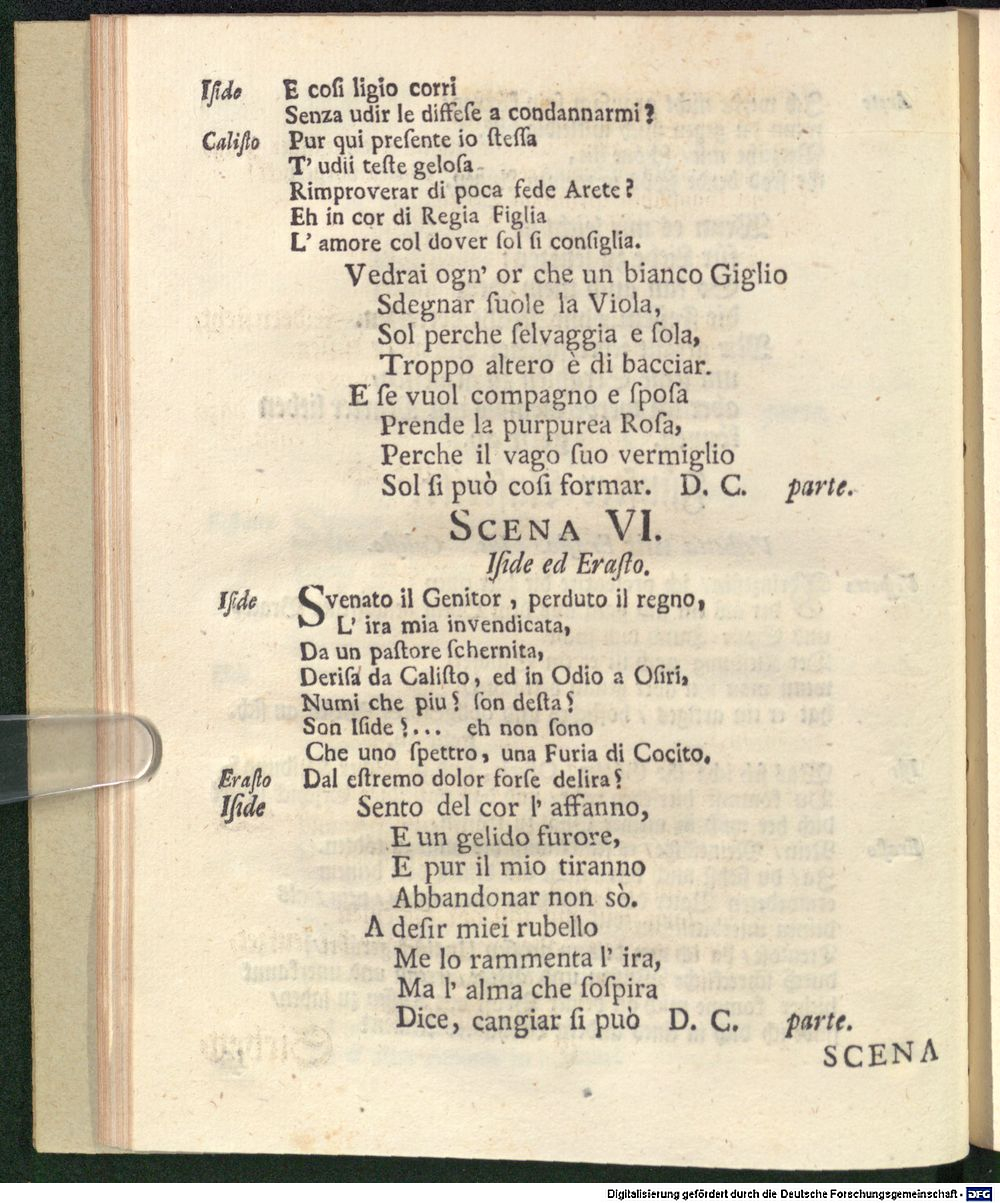 Iſide E coſi ligio corri
Senza udir le diffeſe a condannarmi?
Caliſto Pur qui preſente io ſteſſa
T' udii teſte geloſa
Rimproverar di poca fede Arete?
Eh in cor di Regia Figlia
L' amore col dover ſol ſi conſiglia.
Vedrai ogn' or che un bianco Giglio
Sdegnar ſuole la Viola,
Sol perche ſelvaggia e ſola,
Troppo altero è di bacciar.
E ſe vuol compagno e ſpoſa
Prende la purpurea Roſa,
Perche il vago ſuo vermiglio
Sol ſi può coſi formar. D. C. parte.
SCENA VI.
Iſide ed Eraſto.
Iſide Svenato il Genitor, perduto il regno,
L' ira mia invendicata,
Da un paſtore ſchernita,
Deriſa da Caliſto, ed in Odio a Oſiri,
Numi che piu? ſon deſta?
Son Iſide?... eh non ſono
Che uno ſpettro, una Furia di Cocito.
Eraſto Dal eſtremo dolor forſe delira?
Iſide Sento del cor l' affanno,
E un gelido furore,
E pur il mio tiranno
Abbandonar non sò.
A deſir miei rubello
Me lo rammenta l' ira,
Ma l' alma che ſoſpira
Dice, cangiar ſi può D. C. parte.
SCENA
Digitalisierung gefördert durch die Deutsche Forschungsgemeinschaft - DFG